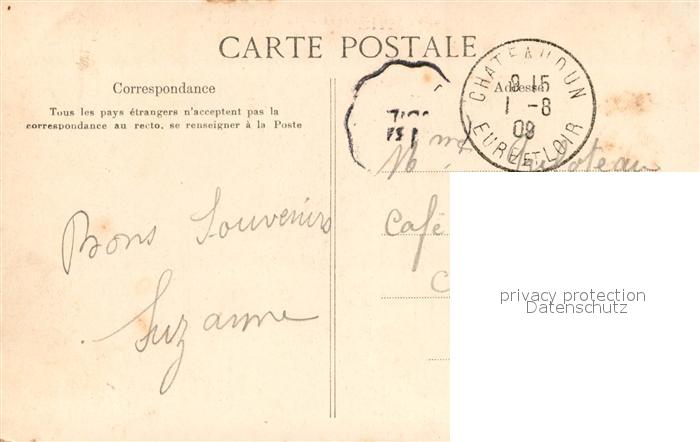 CARTE POSTALE
Correspondance
Tous les pays étrangers n'acceptent pas la
correspondance au recto, se renseigner à la Poste
Adresse
CHATEAUDUN
9 15
1 -8
09
EURE-ET-LOIR
Mme
Café
C
Bons Souvenirs
Suzanne
privacy protection
Datenschutz